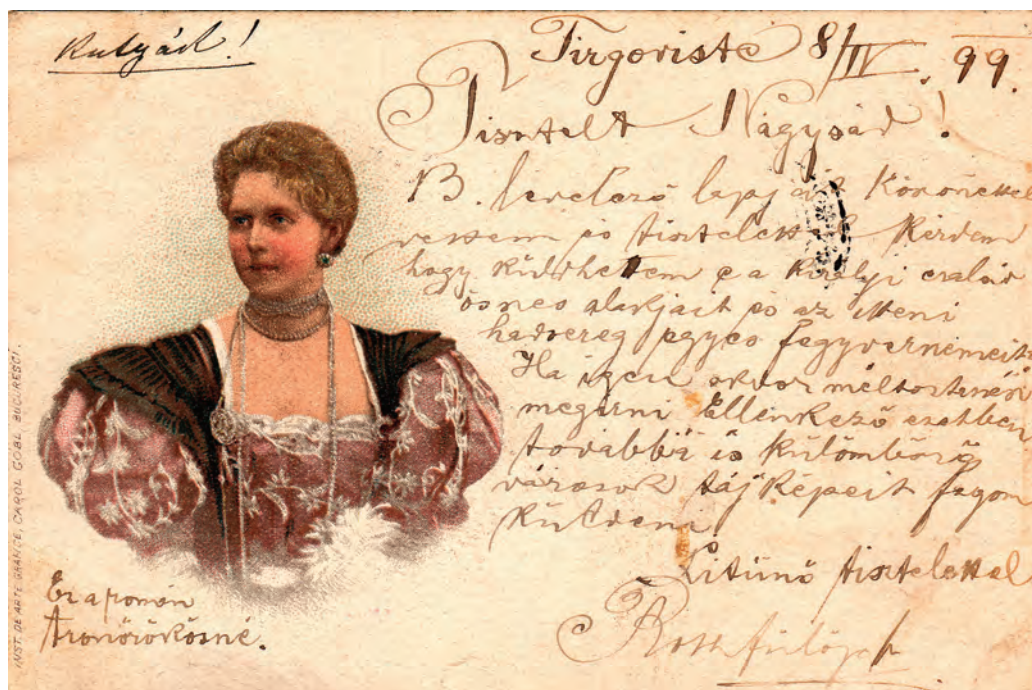 Kutyás!
Tirgoviste 8/IV. 99.
Tisztelt Nagysád!
B. levelező lapját Könönettel
vettem és tisztelettel Kérdem
hogy Küldhettem e a királyi család
ösnes alakjait és az itteni
hadsereg egyes fegyvernemeit
Ha igen akkor méltóztassék
megirni Ellenkező esetben
továbbá is külömböző
városok tájképeit fogom
Küldeni
Kitünő tisztelettel
Roth fülöp
Ez a román
tronörökösné.
INST. DE ARTE GRAFICE, CAROL GÖBL, BUCURESCI.